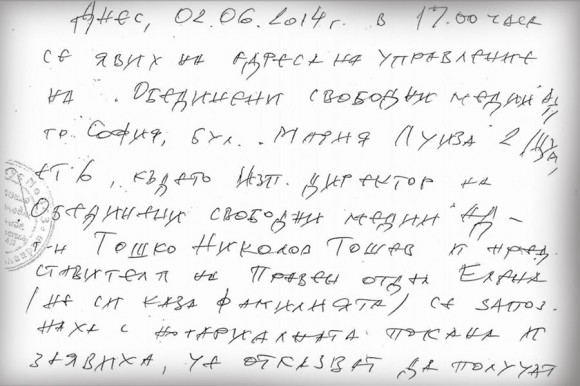 Днес, 02.06.2014г. в 17.00 часа
се явих на адреса на управление
на "Обединени свободни медии" АД,
гр. София, бул. "Мария Луиза" 2 /ЦУМ/,
ет. 6, където Изп. директор на
"Обединени свободни медии" АД –
г-н Тошко Николов Тошев и пред-
ставител на Правен отдел Елена
/не си каза фамилията/ се запоз-
наха с нотариалната покана и
заявиха, че отказват да получат